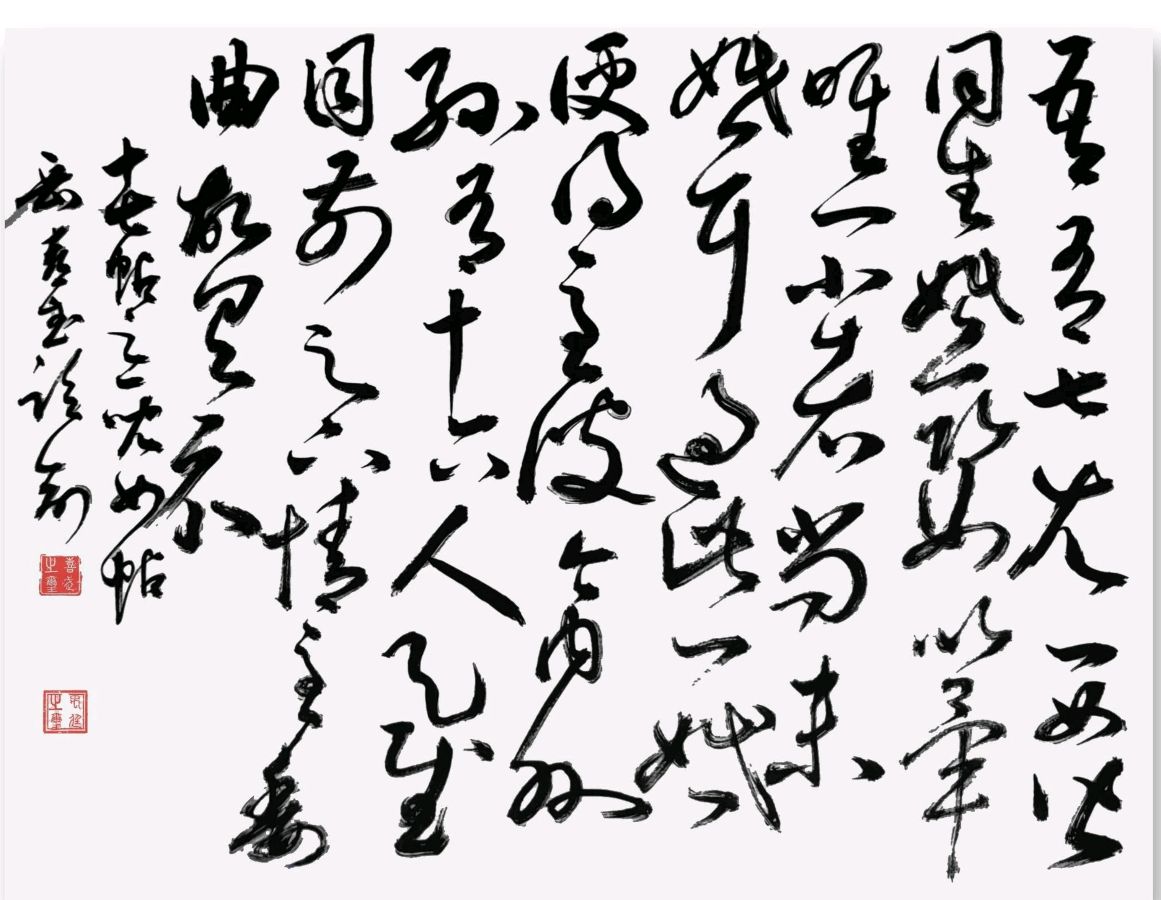 吾有七兒一女皆
同生婚娶以畢
唯一小者尚未
婚耳過此一婚
便得至彼今內外
孫有十六人足慰
目前足下情至委
曲故具示
十七帖之一兒女帖
岳喜武
喜武之璽
之璽